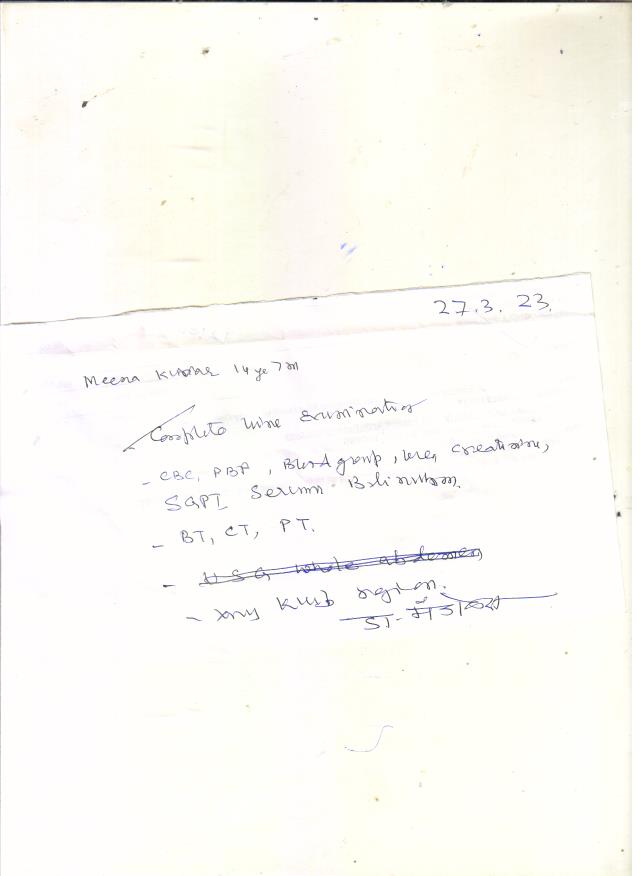 27.3.23.
Meena Kumar 14 ye 7m
Complete urine Examination
- CBC, PBF, Blood group, urea, creatinine,
SGPT Serum Bilirubin.
- BT, CT, PT.
- USG whole abdomen
- Xray KUB region.
डा-